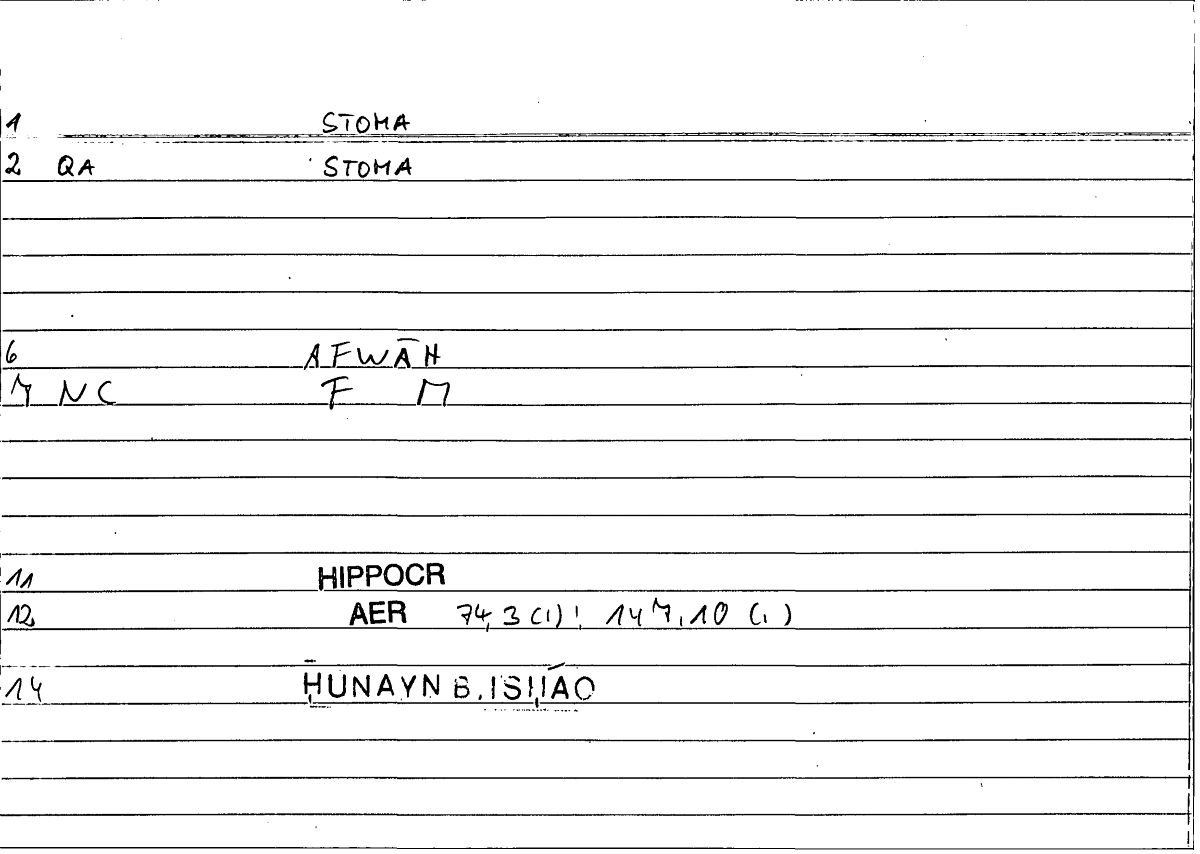 1 STOMA
2 QA STOMA
6 AFWĀH
7 NC F M
11 HIPPOCR
12 AER 74,3 (1)! 147,10 (1)
14 ḤUNAYN B. ISḤĀQ